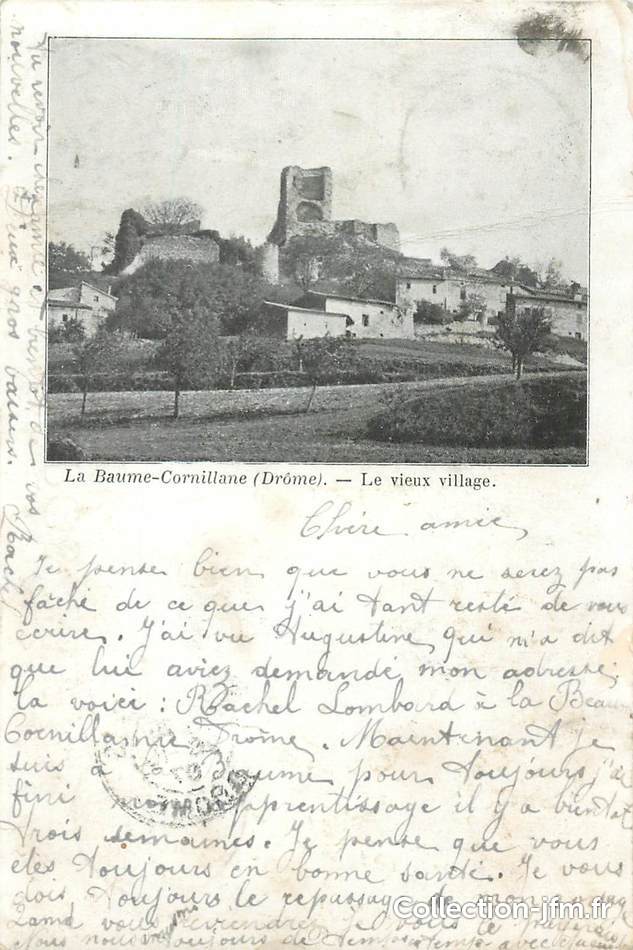 La Baume-Cornillane (Drôme). — Le vieux village.
Chère amie,
Je pense bien que vous ne serez pas
fâché de ce que j'ai tant resté de vous
écrire. J'ai vu Augustine qui m'a dit
que lui aviez demandé mon adresse
la voici : Rachel Lombard à la Beau
Cornillanne Drôme. Maintenant je
suis à la Baume pour toujours j'ai
fini mon apprentissage il y a bientôt
trois semaines. Je pense que vous
etes toujours en bonne santé. Je vous
dois toujours le repassage de mon
quand vous reviendrez je vous le
nous toujours de temps à temps avec
Au revoir chère amie et bien à vos
nouvelles. D'une gros baisers.
Rachel
Collection-jfm.fr